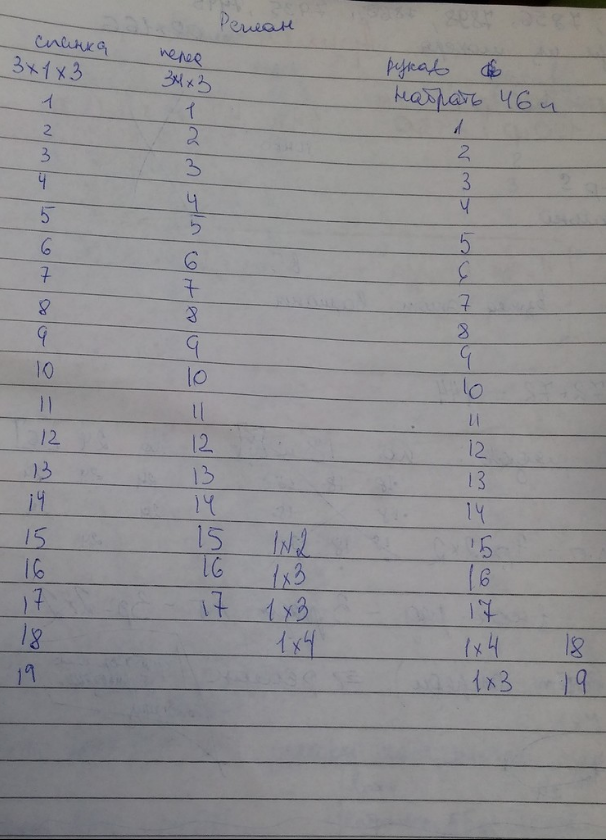 Реглан
спинка перед рукав
3x1x3 3x1x3 Набрать 46 п
1 1 1
2 2 2
3 3 3
4 4 4
5 5 5
6 6 6
7 7 7
8 8 8
9 9 9
10 10 10
11 11 11
12 12 12
13 13 13
14 14 14
15 15 1x2 15
16 16 1x3 16
17 17 1x3 17
18 1x4 1x4 18
19 1x3 19